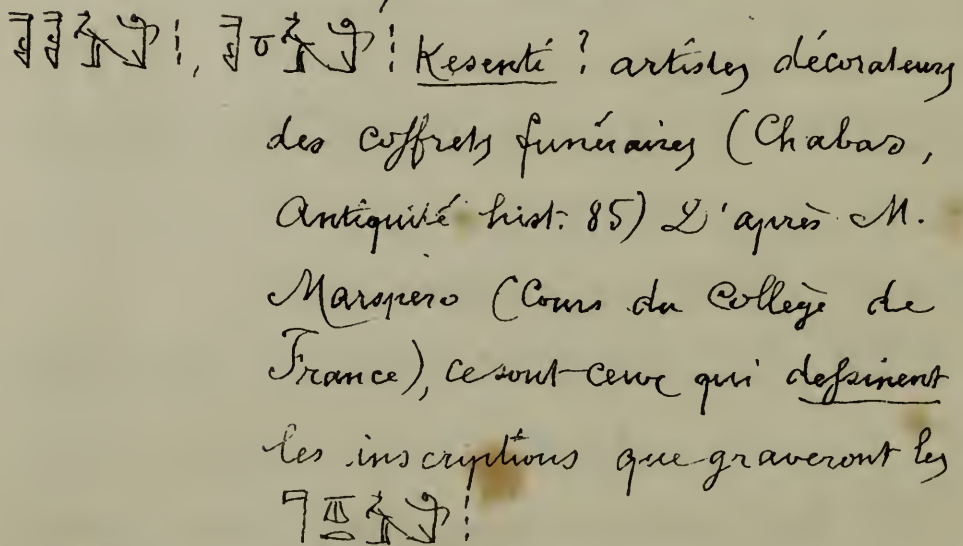 Kesenté ? artistes décorateurs
des coffrets funéraires (Chabas,
Antiquité hist: 85) D'après M.
Marspero (Cours du Collège de
France), ce sont ceux qui dessinent
les inscriptions que graveront les